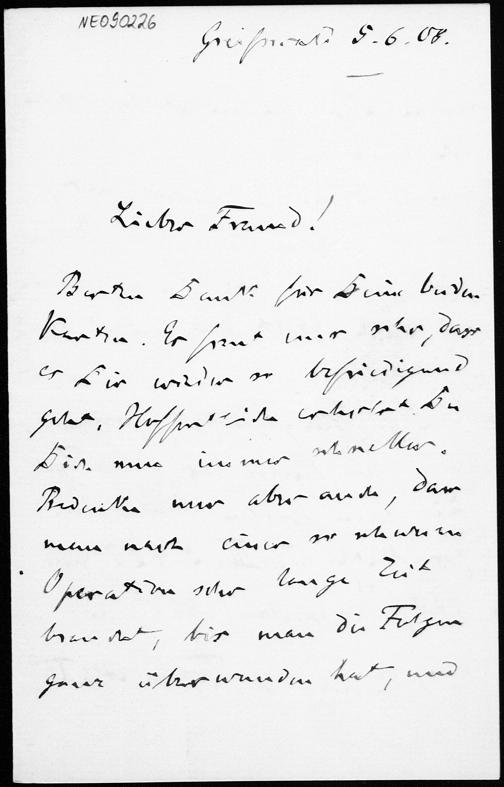 NE090226
Greifswald 5.-6.-08.
Lieber Freund!
Besten Dank für Deine beiden
Karten. Es freut mich sehr, dass
es Dir wieder so befriedigend
geht. Hoffentlich erholst Du
Dich nun immer schneller.
Bedenke nur aber auch, dass
man nach einer so schweren
Operation sehr lange Zeit
braucht, bis man die Folgen
ganz überwunden hat, und